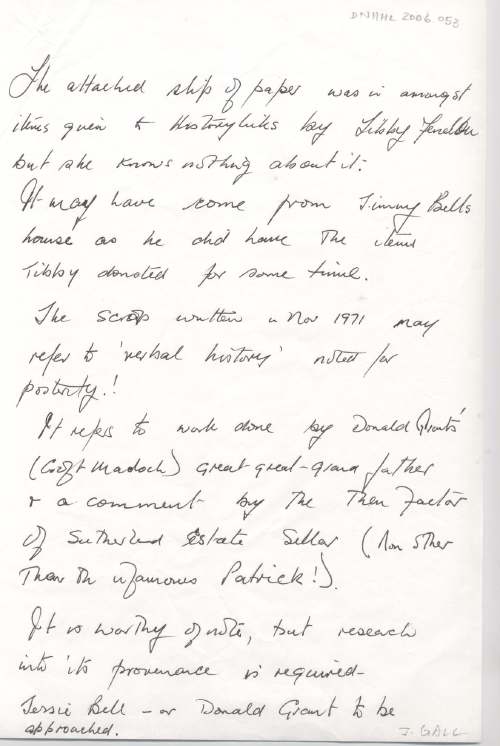 DNHHL 2006 053
The attached slip of paper was in amongst
items given to Historylinks by Libby
but she knows nothing about it.
It may have come from Jimmy Bells
house as he did have the items
Libby donated for some time.
The scrap written in Nov 1971 may
refer to 'verbal history' noted for
posterity.!
It refers to work done by Donald Grants'
(Croft Madoch) great great-grand father
& a comment by the then Factor
of Sutherland Estate Sellar (Non other
Than Th infamous Patrick!).
It is worthy of note, but research
into its provenance is required-
Jessie Bell - or Donald Grant to be
approached.
J. GALL